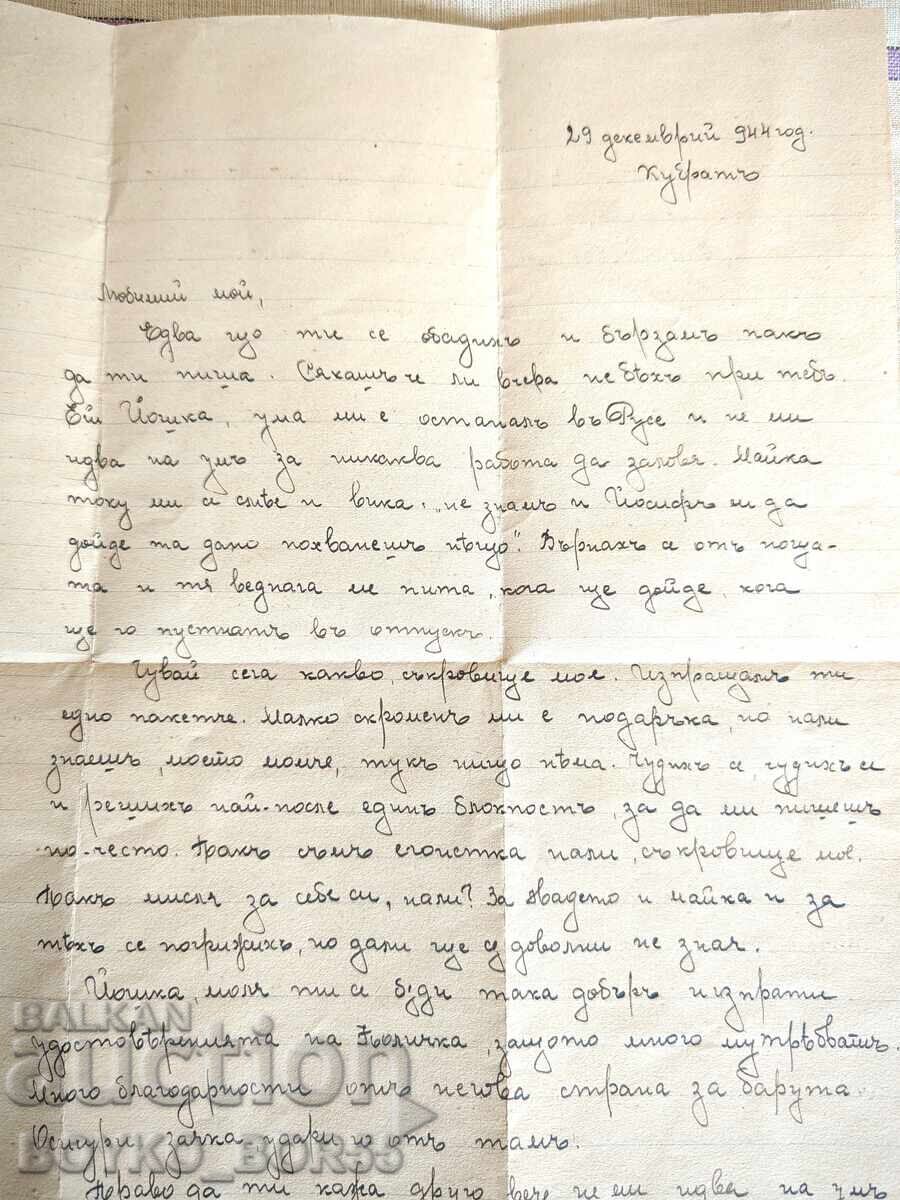 29 декемврий 944 год.
Кубратъ
Любимий мой,
Едва що ти се обадихъ и бързамъ пакъ
да ти пиша. Сякашъ че ли вчера не бѣхъ при тебъ.
Ей Йошка, ума ми е останалъ въ Русе и не ми
идва на умъ за никаква работа да заловя. Майка
току ми се смѣе и вика: „не знамъ и Йосифъ ли да
дойде та дано похванешъ нѣщо". Върнахъ се отъ поща-
та и тя веднага ме пита, кога ще дойде, кога
ще го пустнатъ въ отпускъ.
Чувай сега какво, съкровище мое. Изпращамъ ти
едно пакетче. Малко скроменъ ми е подаръка, но нали
знаешъ, моето момче, тукъ нищо нѣма. Чудихъ се, чудихъ се
и решихъ най-после единъ блокностъ, за да ми пишешъ
по-често. Пакъ съмъ егоистка нали, съкровище мое.
Пакъ мисля за себе си, нали? За и майка и за
тѣхъ се погрижихъ, но дали ще с. доволни не зная.
Йошка, моля ти се бѫди така добъръ и изпрати
удостовѣренията на Количка, защото много му трѣбватъ.
Много благодарности отъ негова страна за барута.
Осигури зачка удари го отъ тамъ.
Право да ти кажа друго вече не ми идва на умъ
BALKAN
auction
BOYKO_BOR55